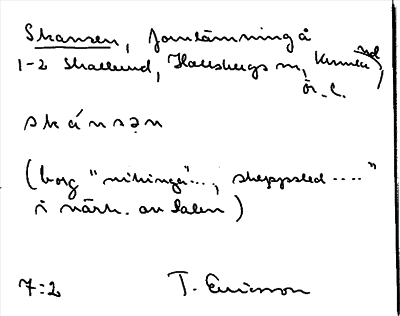 Skansen, fornlämning å
1-2 Skallund, Hallsbergs sn, Kumla hd,
Ör. l.
skánsən
(borg "vikinga"..., skeppsled ...."
i närh. av Salen)
7:2 T. Ericsson